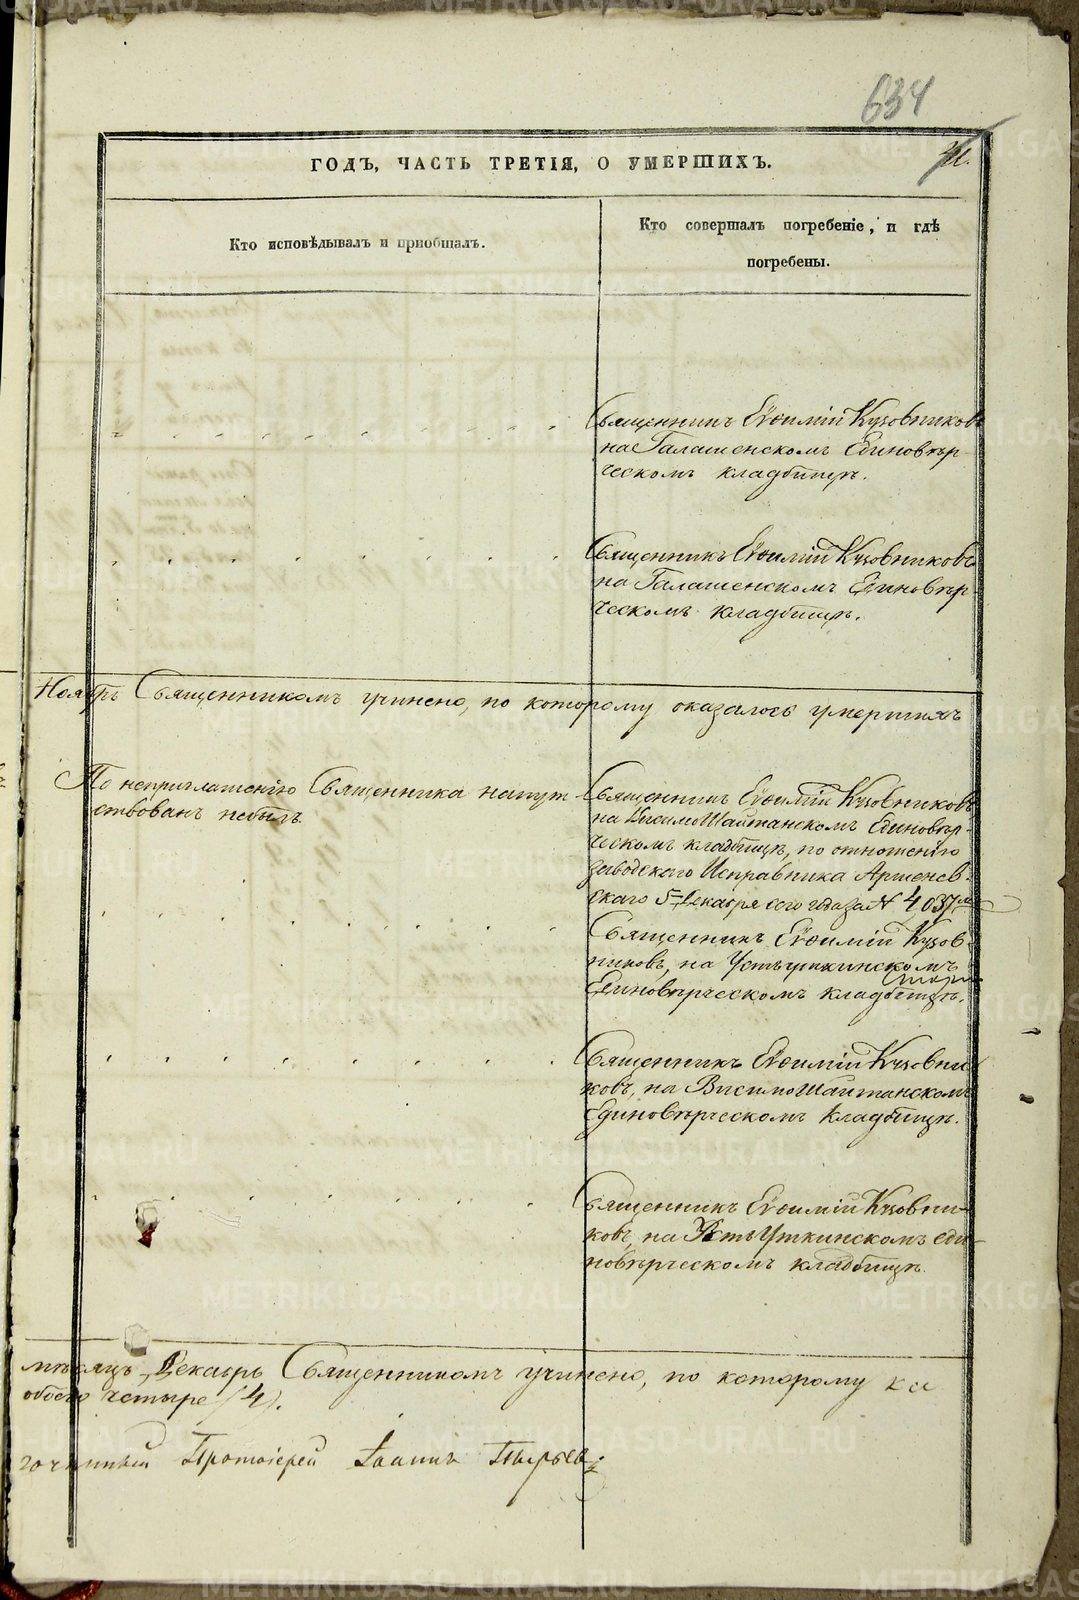 634
ГОДЪ, ЧАСТЬ ТРЕТІЯ, О УМЕРШИХЪ.
Кто исповѣдывалъ и пріобщалъ.
Кто совершалъ погребеніе, и гдѣ
погребены.
Священникъ Евѳимій Кузовниковъ
на Галашенскомъ Единовѣр-
ческомъ кладбищѣ.
Священникъ Евѳимій Кузовниковъ
на Галашенскомъ Единовѣр
ческомъ кладбищѣ.
Ноябрь Священникомъ учинено, по которому оказалось умершихъ
По неприглашенію Священника напут-
ствованъ небылъ.
Священникъ Евѳимій Кузовниковъ
на ВисимоШайтанскомъ Единовѣр-
ческомъ кладбищѣ, по отношенію
заводскаго Исправника
скаго 5 Декабря сего года за № 4037
Священникъ Евѳимій Кузов-
никовъ, на Устьуткинскомъ
Единовѣрческомъ кладбищѣ.
Священникъ Евѳимій Кузовни
ковъ, на ВисимоШайтанскомъ
Единовѣрческомъ кладбищѣ.
Священникъ Евѳимій Кузовни-
ковъ, на УстьУткинскомъ еди-
новѣрческомъ кладбищѣ.
мѣсяцъ Декабрь Священникомъ учинено, по которому ка
обоего четыре (4).
гочинный Протоіерей Іоаннъ Пырьевъ
METRIKI.GASO-URAL.RU